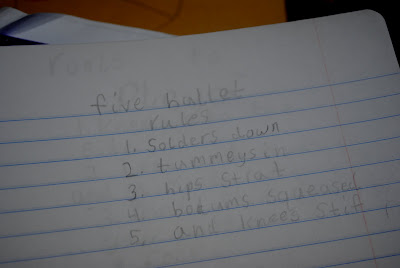 five ballet
rules
1. Solders down
2. tummeys in
3. hips strat
4. bockums squeased
5. and knees stif